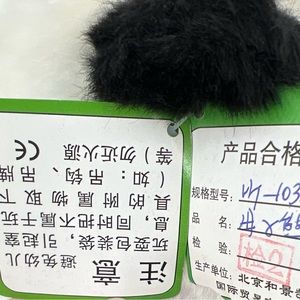 注意
避免幼儿
玩耍包装袋,引起窒
息,同时把不属于玩
具的附属物取下
(如:吊钩、吊牌
等)勿近火源 CE
产品合格
规格型号:
品 名:
检 验: 检2
生产单位: 北京和景
国际贸易